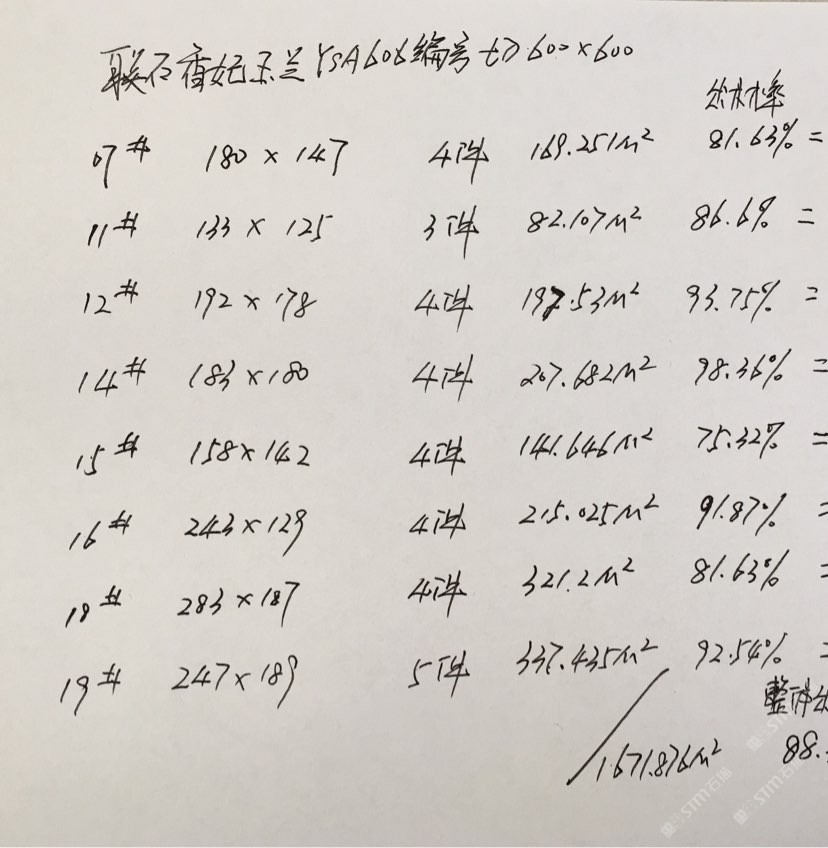 联石香妃玉兰YSA606编号切600×600
出材率
07# 180×147 4件 169.251M² 81.63% =
11# 133×125 3件 82.107M² 86.6% =
12# 192×178 4件 197.53M² 93.75% =
14# 183×180 4件 207.682M² 98.36% =
15# 158×142 4件 141.646M² 75.32% =
16# 243×129 4件 215.025M² 91.87% =
18# 283×187 4件 321.2M² 81.63% =
19# 247×189 5件 337.435M² 92.54% =
整体出
1671.876M² 88.
STM石猫
STM石